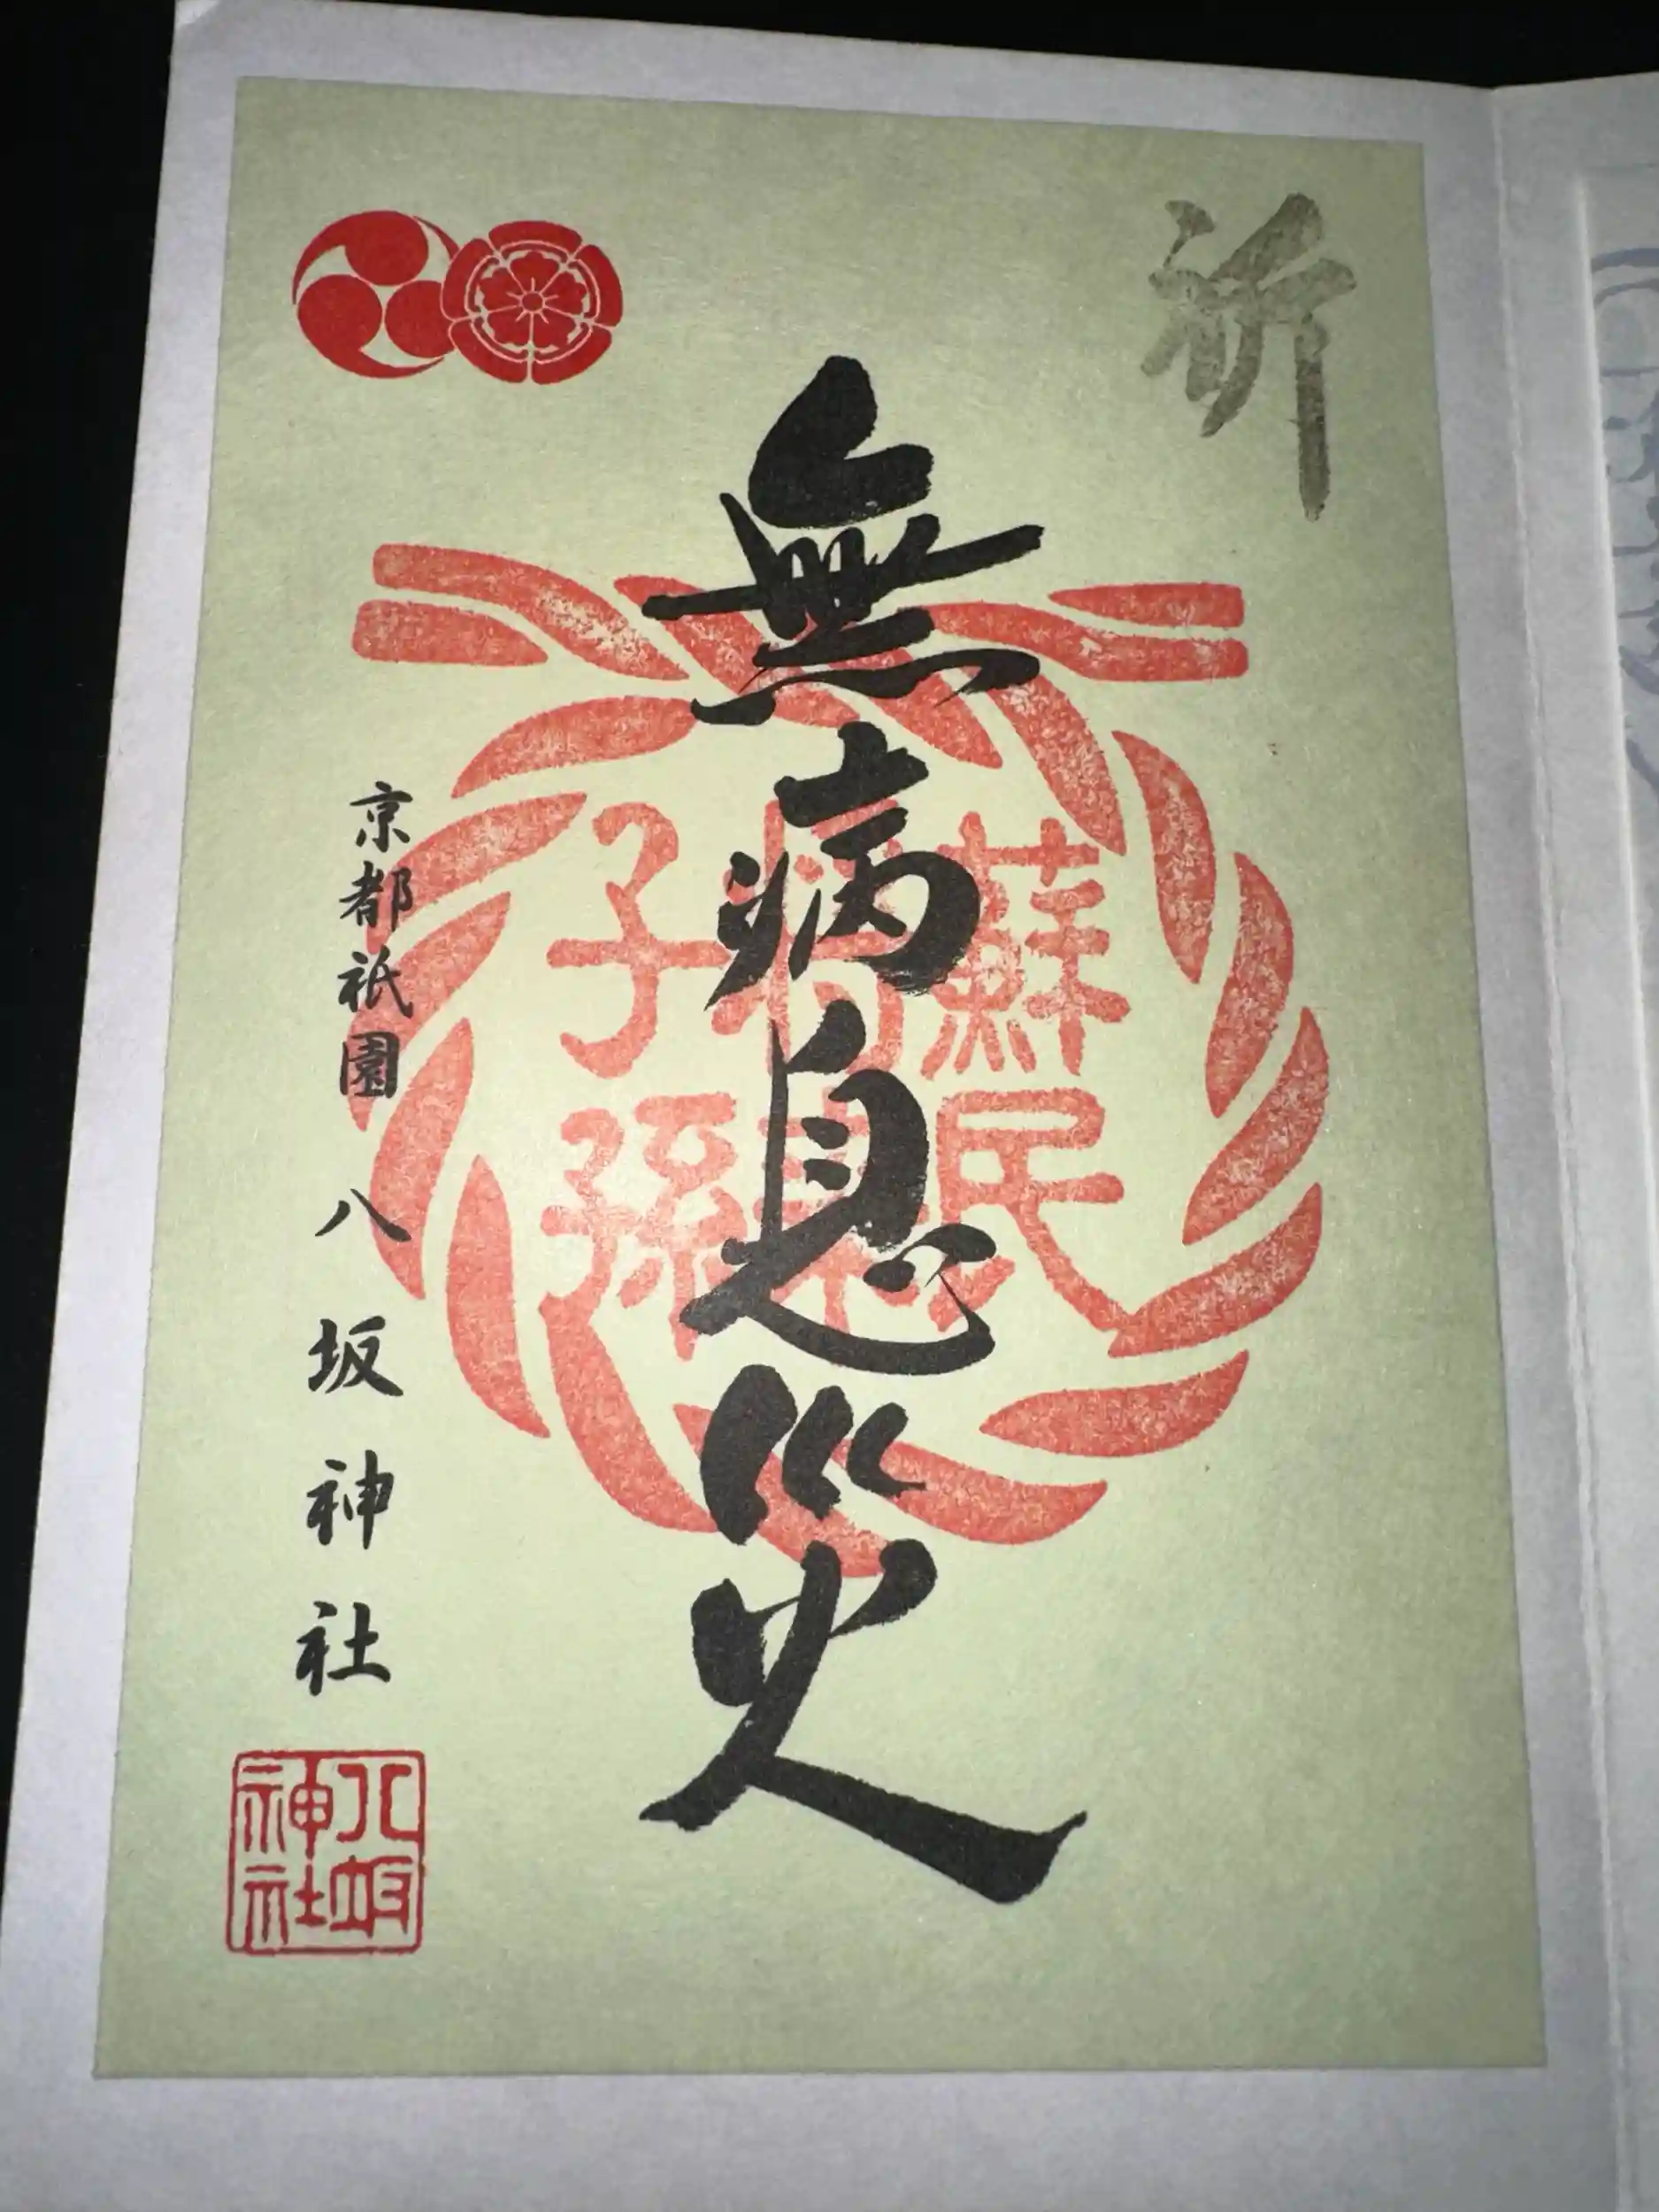 祈
無病息災
蘇民
将来
子孫
京都祇園 八坂神社
八坂
神社